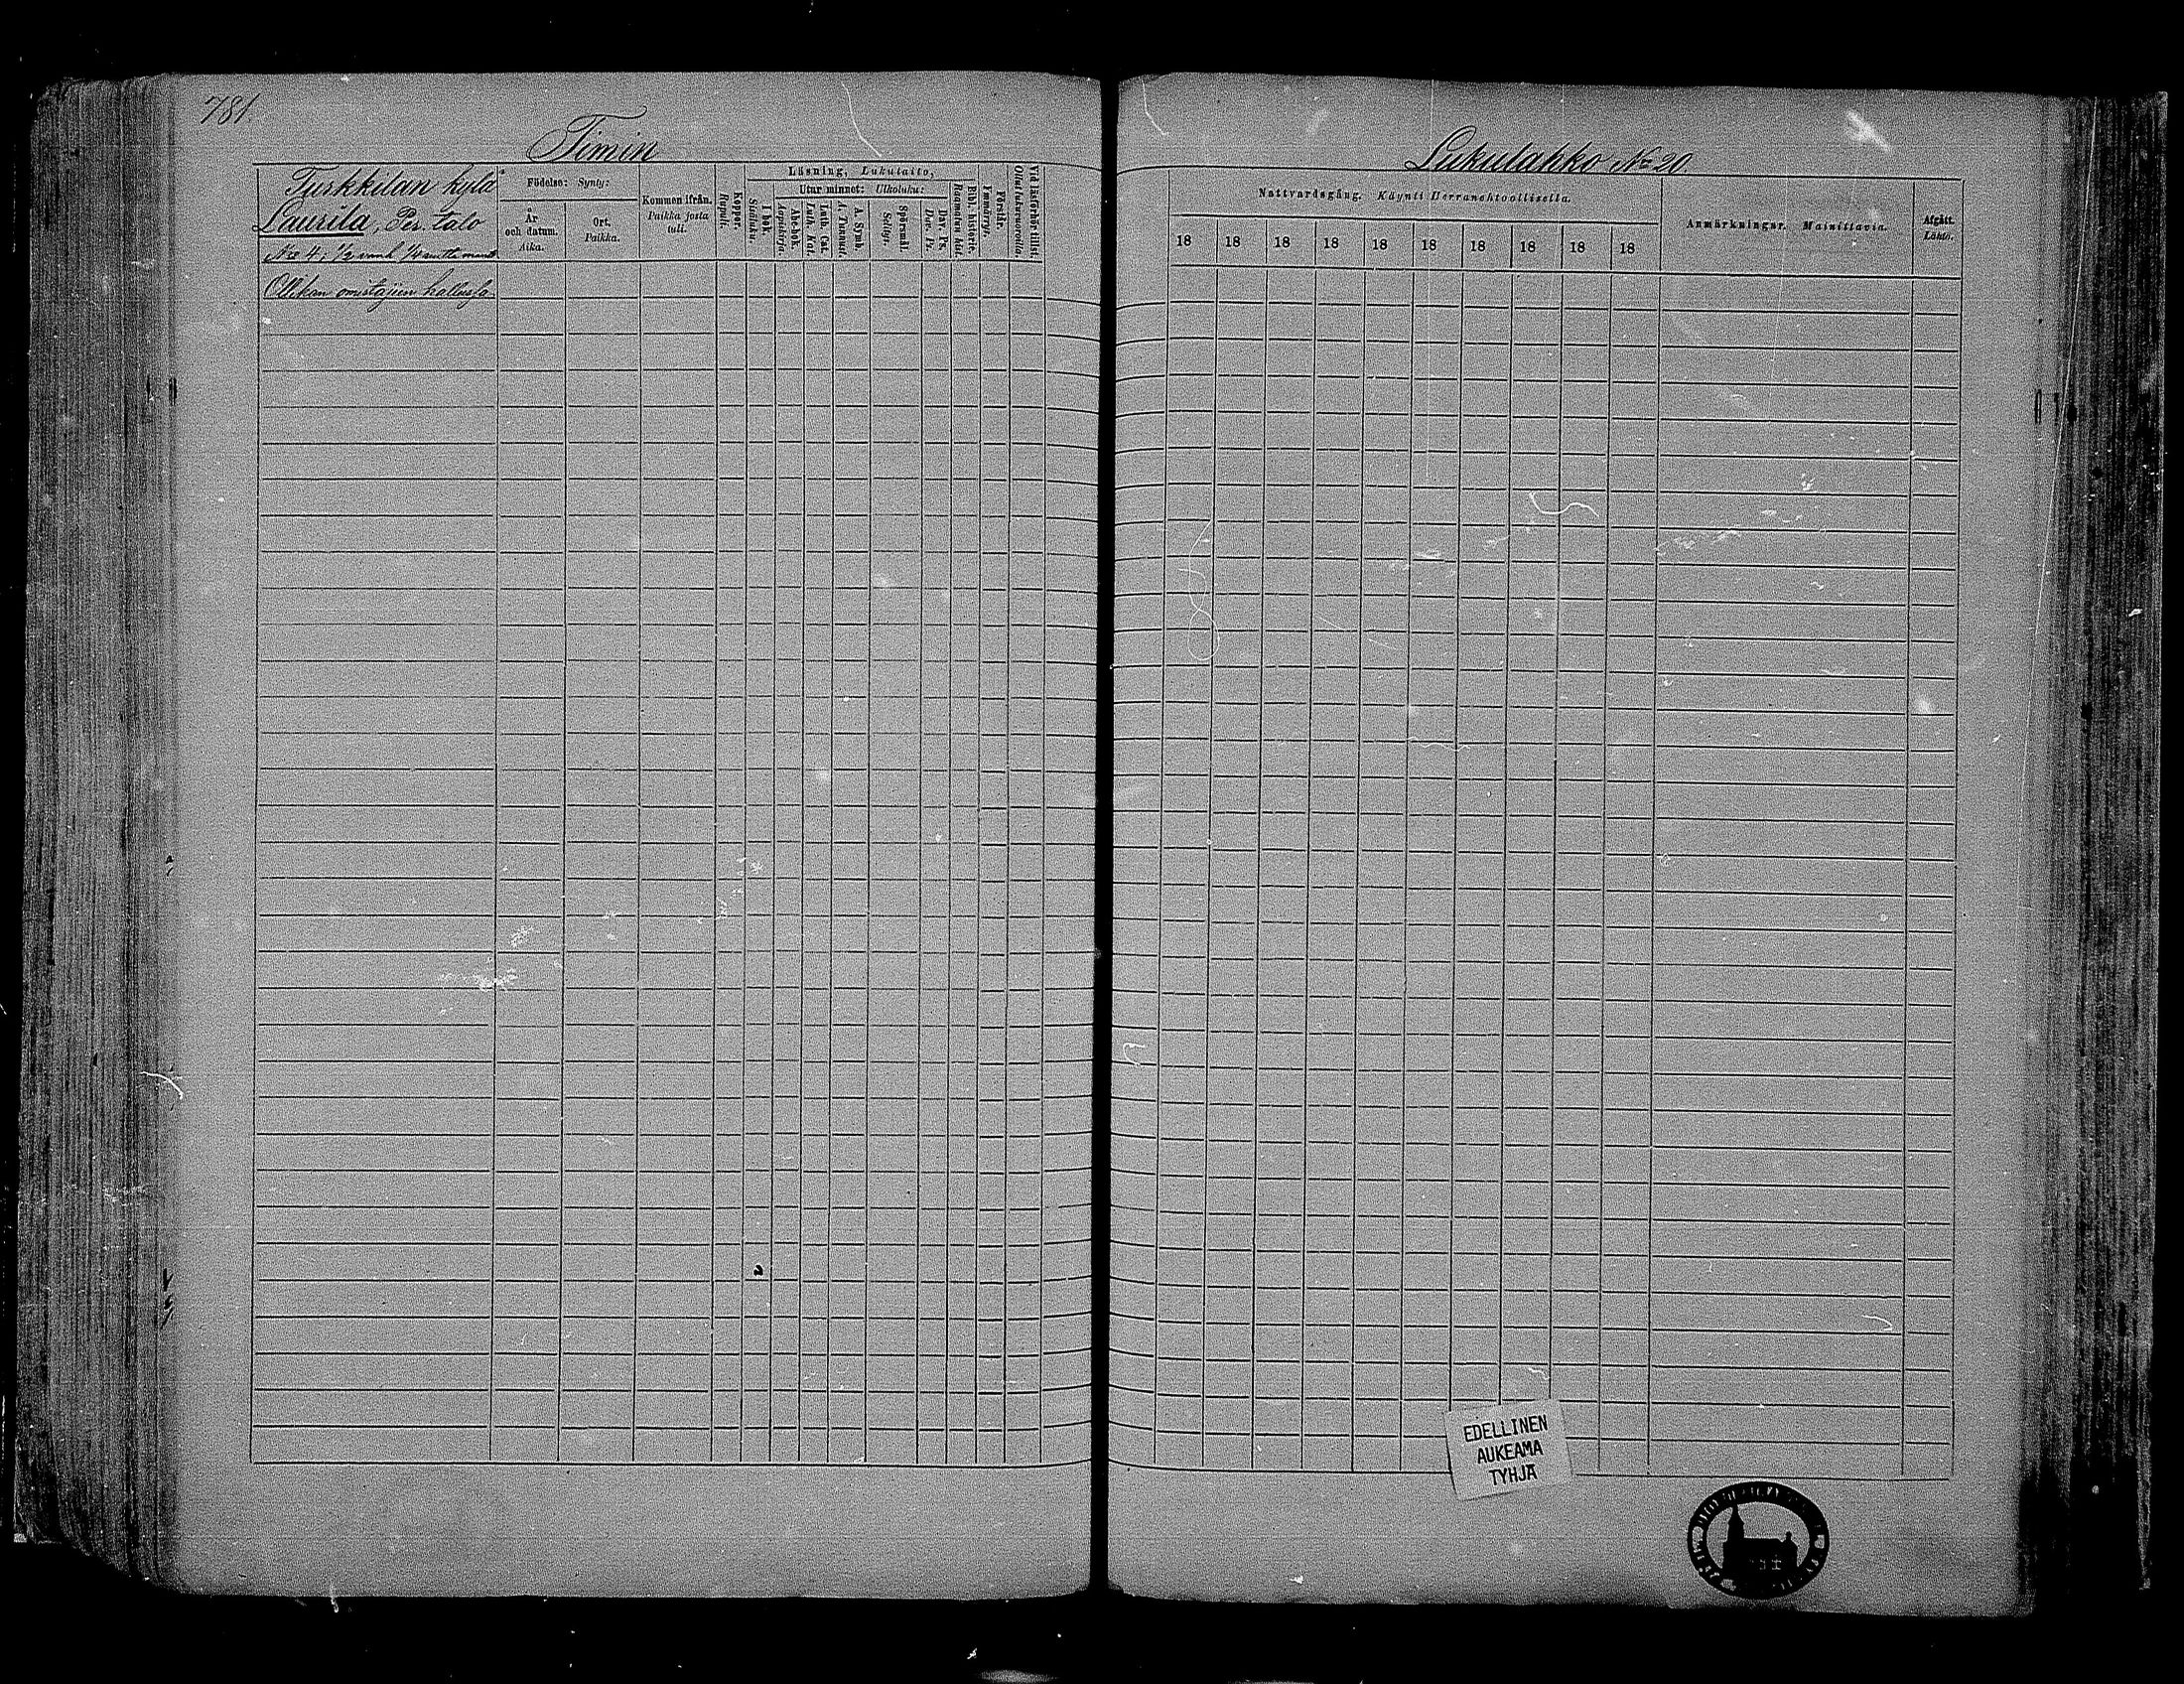 781
Timin
Turkkilan kylä
Laurila, Per. talo
Nro 4, 1/2 vanh. 1/4 mantt.
Ollikan omistajain hallussa.
Födelse: Synty:
År och datum. Aika.
Ort. Paikka.
Kommen ifrån. Paikka josta tuli.
Koppor. Rupuli.
Läsning, Lukutaito,
I bok. Sisäluku.
Utur minnet: Ulkoluku:
Abc-bok. Aapiskirja.
Luth. Cat. Luth. Kat.
A. Symb. A. Tunnust.
Spörsmål Selitys.
Dav. Ps. Dav. Ps.
Bibl. historie. Raamatun hist.
Förstår. Ymmärrys.
Vid läsförhör tillst. Ollut lukuvuorolla.
Lukulahko No 20.
Nattvardsgång. Käynti Herranehtoollisella.
18 18 18 18 18 18 18 18 18 18
Anmärkningar. Mainittavia.
Afgått. Lähtö.
EDELLINEN
AUKEAMA
TYHJÄ